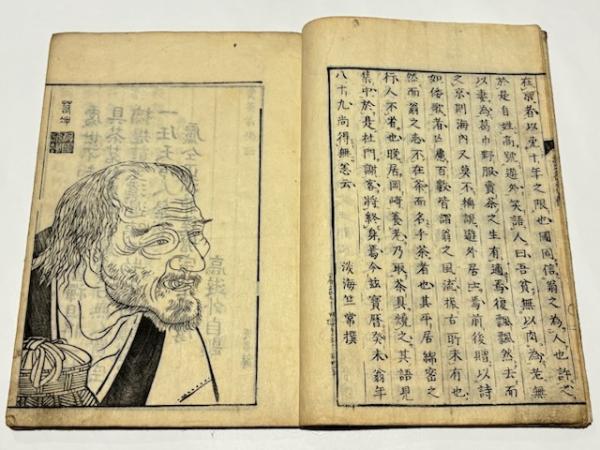 在京者以十年之限也國固信翁之為人也許之
於是自姓高號遊外笑語人曰吾貧無以肉為老無
以妻為葛巾野服賣茶之生有適焉復飄飄然去而
之京則海內又莫不稱說遊外居士焉前後贈以詩
如倭歌者慮百數皆謂翁之風流振古所未有也
然而翁之志不在茶而名乎茶者也其平居綿密之
行人不省也晚居岡崎養老乃取茶具燒之其語見
集中於是杜門謝客將終身焉今茲寶曆癸未翁年
八十九尚得無恙云
淡海竺常撰